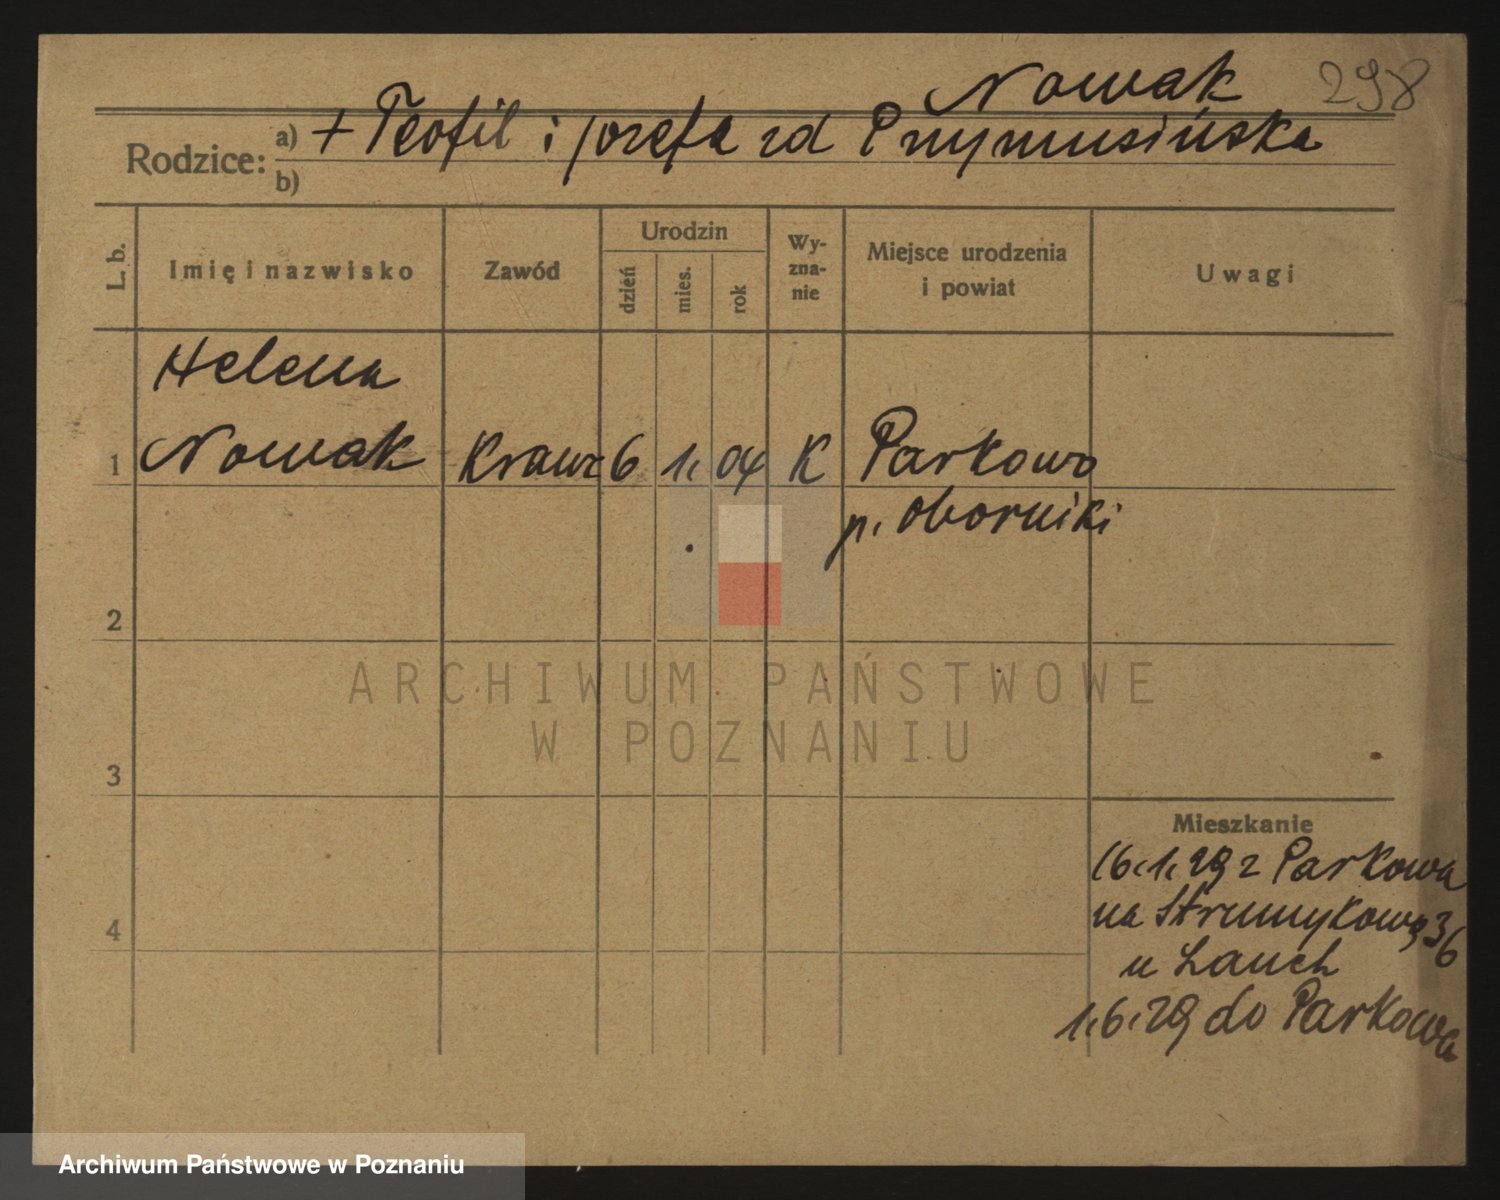 Nowak 298
Rodzice: a) + Teofil i Józefa zd Przymusińska
b)
L. b. Imię i nazwisko Zawód Urodzin dzień mies. rok Wy-zna-nie Miejsce urodzenia i powiat Uwagi
Helena
1 Nowak Krawc 6 1. 04 K Parkowo
p. Oborniki
2
ARCHIWUM PAŃSTWOWE
W POZNANIU
3
Mieszkanie
16.1.29 z Parkowa
na Strumykową 36
4
u Lauch
1.6.29 do Parkowa
Archiwum Państwowe w Poznaniu